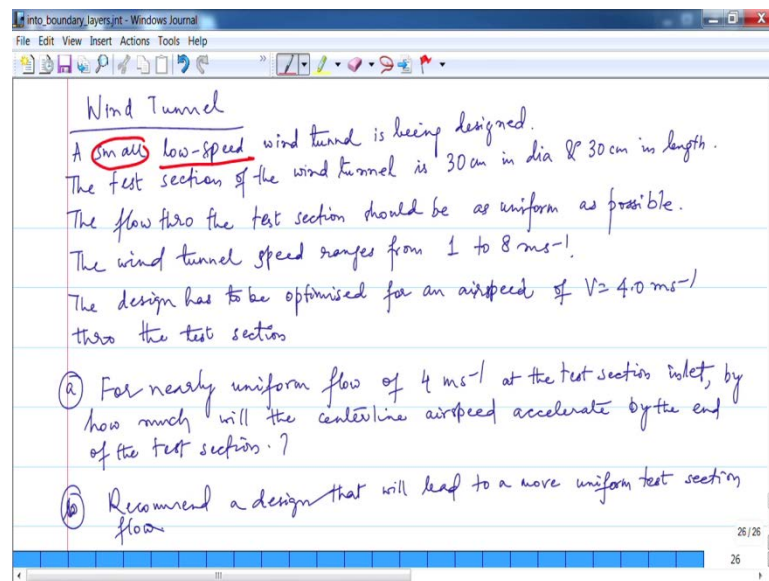 into_boundary_layers.jnt - Windows Journal
File Edit View Insert Actions Tools Help
Wind Tunnel
A small low-speed wind tunnel is being designed.
The test section of the wind tunnel is 30 cm in dia & 30 cm in length.
The flow thro the test section should be as uniform as possible.
The wind tunnel speed ranges from 1 to 8 ms-1.
The design has to be optimised for an airspeed of V= 4.0 ms-1
thro the test section
(a) For nearly uniform flow of 4 ms-1 at the test section inlet, by
how much will the centerline airspeed accelerate by the end
of the test section.?
(b) Recommend a design that will lead to a more uniform test section
flow
26 / 26
26